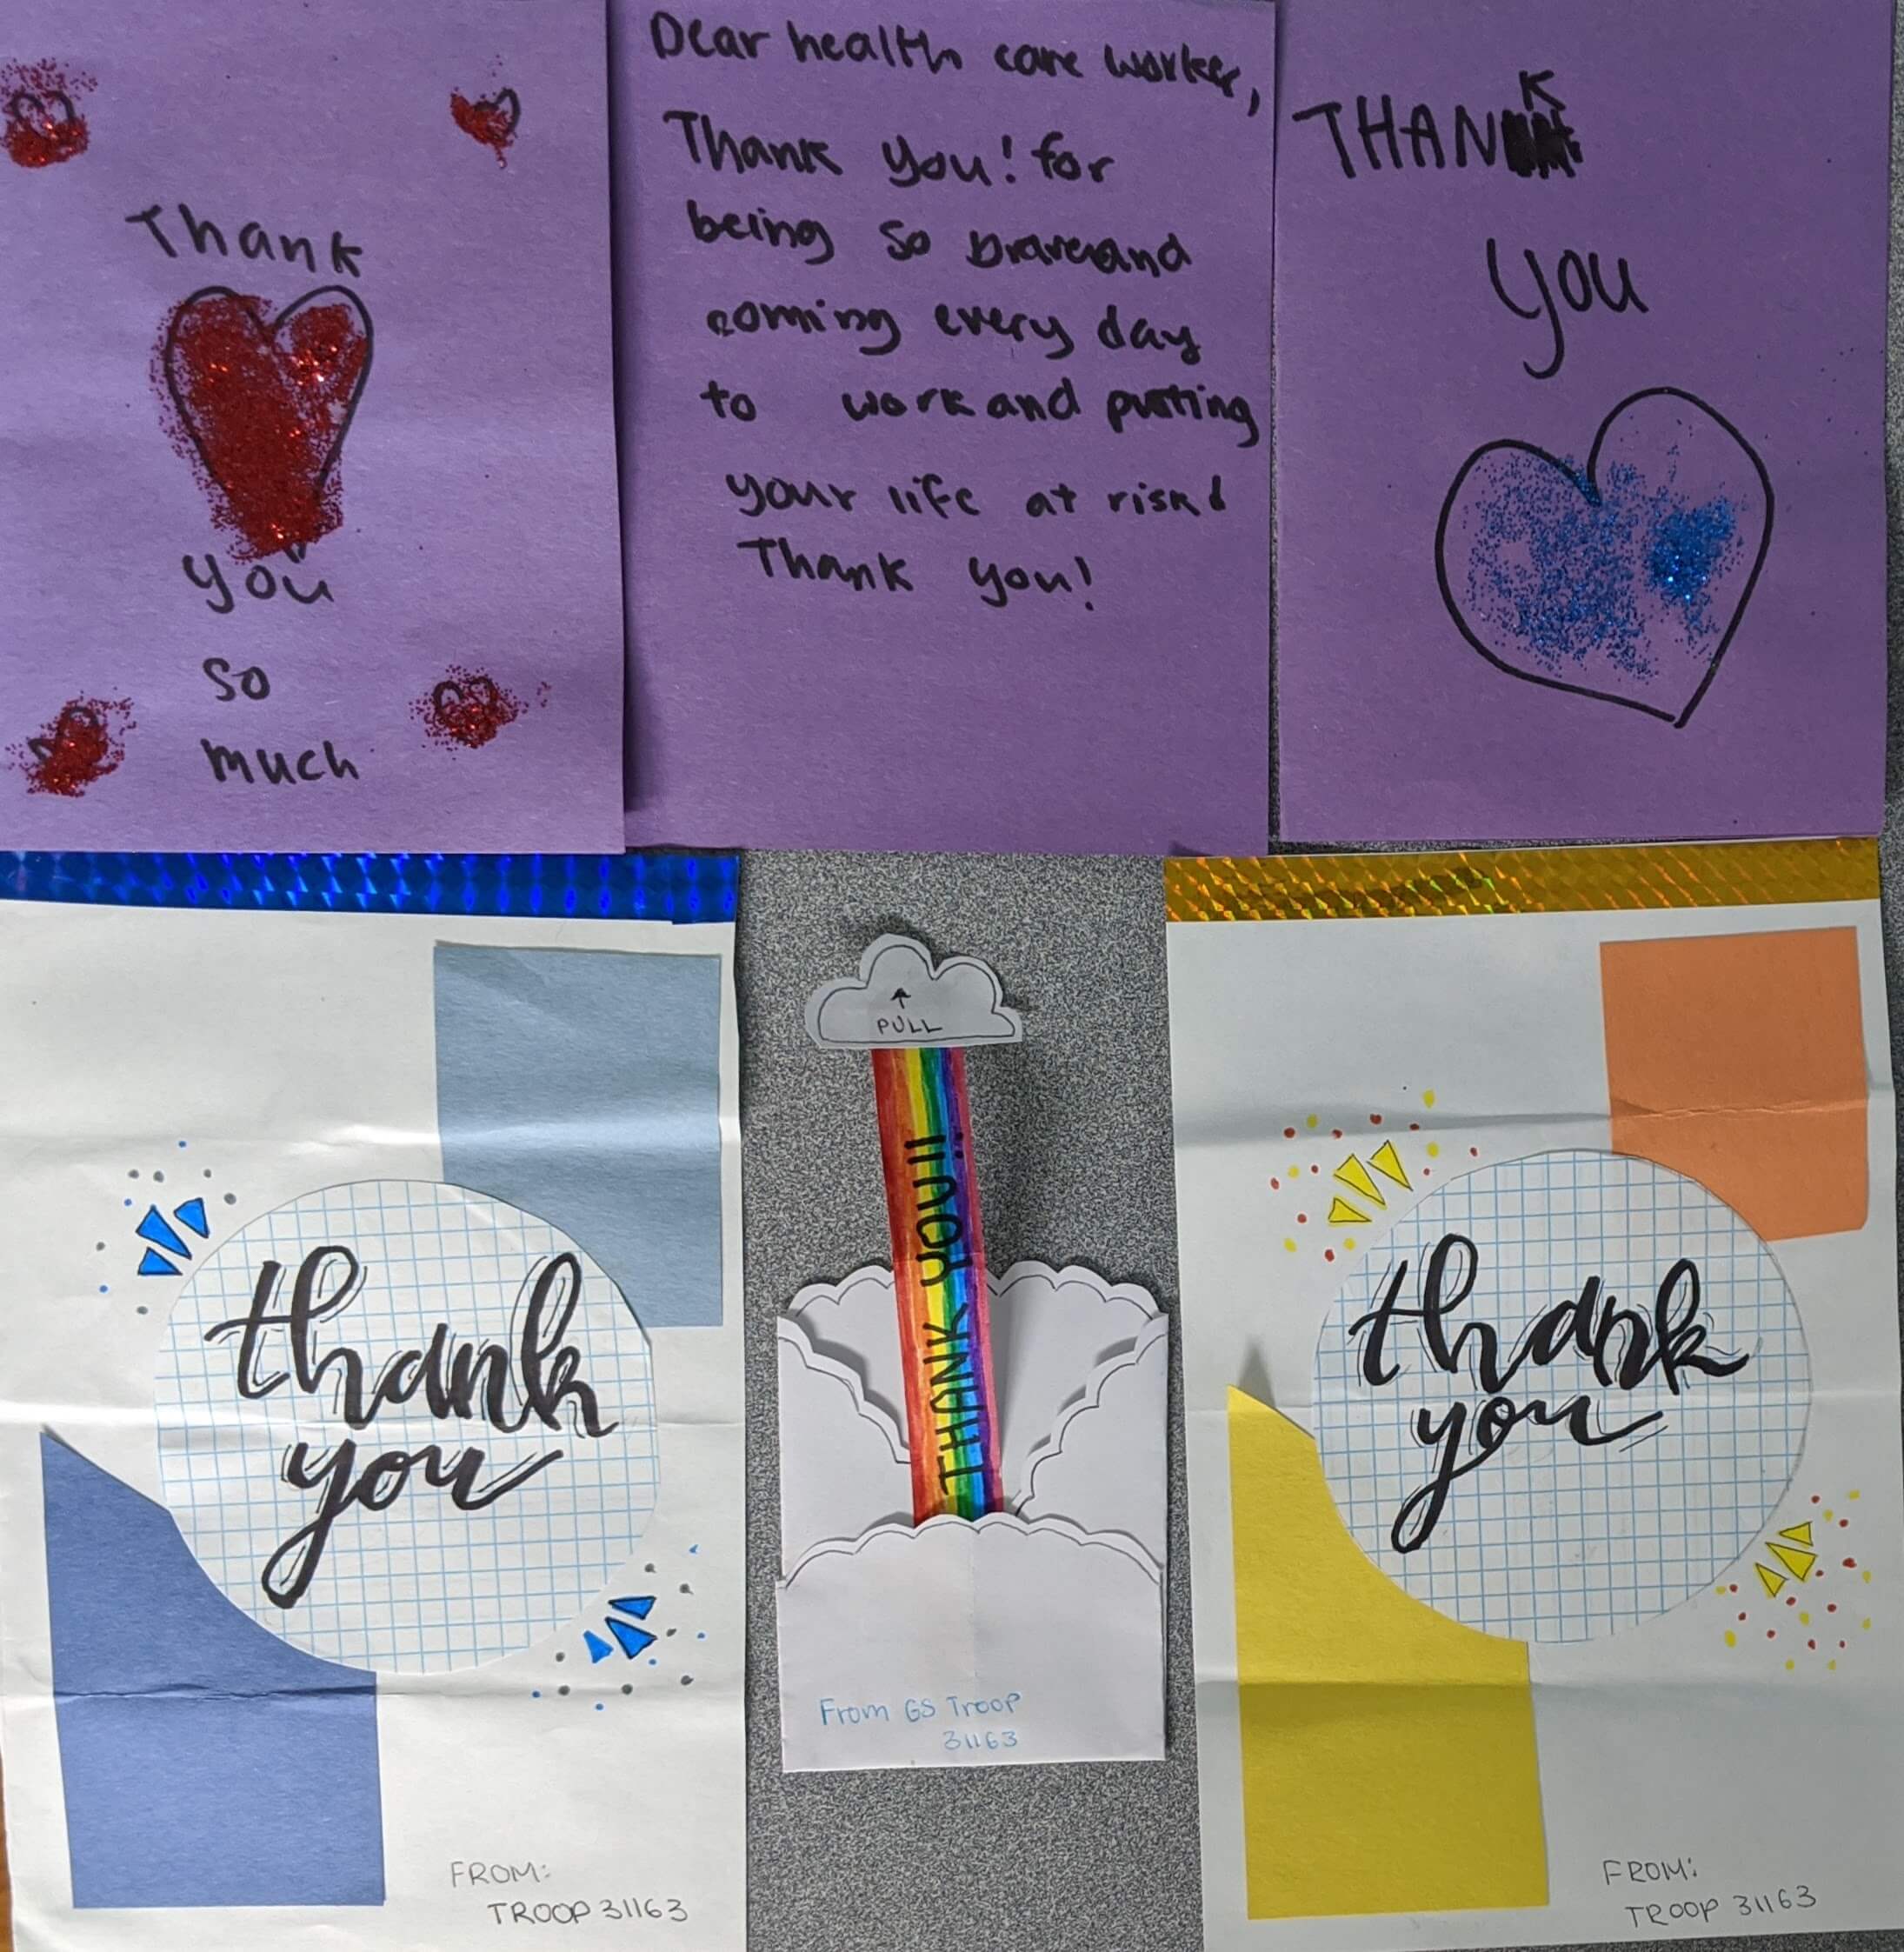 Thank
you
so
much
Dear health care worker,
Thank you! for
being so brave and
coming every day
to work and putting
your life at risk!
Thank you!
THANK
you
thank
you
FROM:
TROOP 31163
PULL
THANK YOU!!
From GS Troop
31163
thank
you
FROM:
TROOP 31163